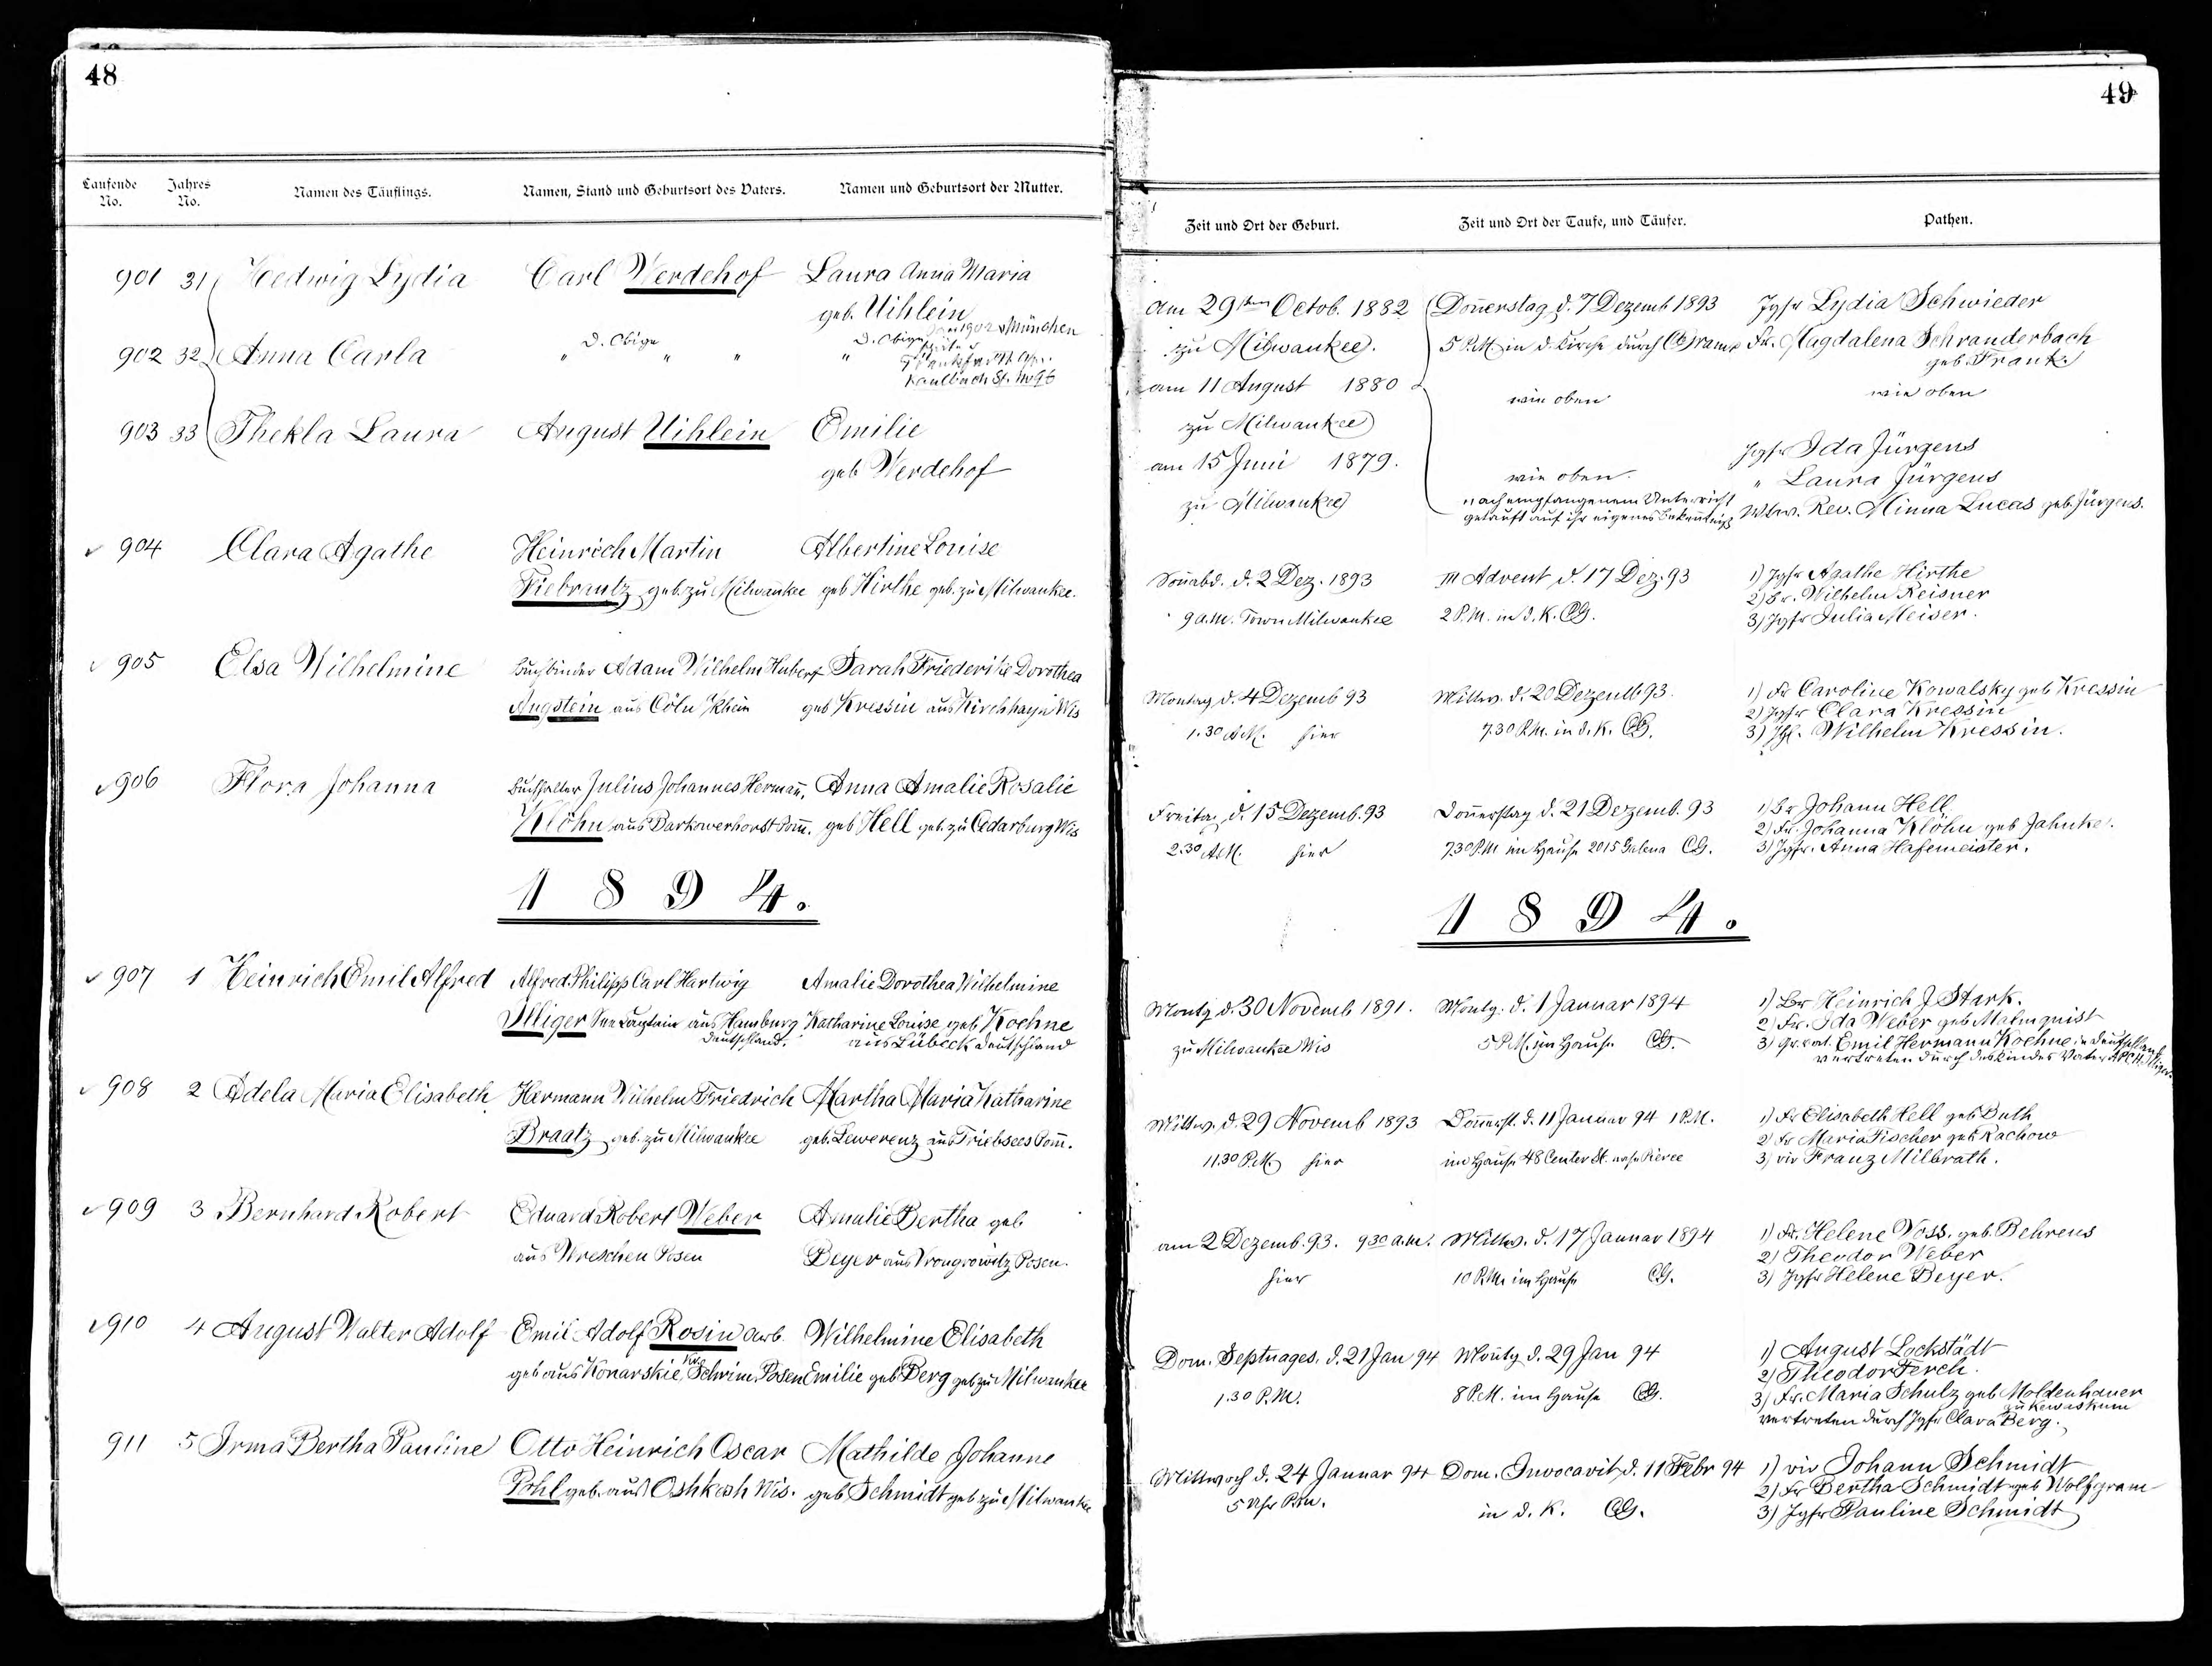 48
Laufende No.
Jahres No.
Namen des Täuflings.
Namen, Stand und Geburtsort des Vaters.
Namen und Geburtsort der Mutter.
901 31 Hedwig Lydia
Carl Werdehof
Laura Anna Maria
geb. Uihlein
in 1902 München
902 32 Anna Carla
" D. Obige " "
" D. Obige
Kaulbach St. No 96
903 33 Thekla Laura
August Uihlein
Emilie
geb Werdehof
904 Clara Agathe
Heinrich Martin
Fiebrantz geb. zu Milwaukee
Albertine Louise
geb Hirthe geb. zu Milwaukee.
905 Elsa Wilhelmine
Buchbinder Adam Wilhelm Hubert
Augstein aus Cöln a/Rhein
Sarah Friederike Dorothea
geb Kressin aus Kirchhayn Wis
906 Flora Johanna
Buchhalter Julius Johannes Hermañ,
Klöhn aus Barkowerhorst Pom̃.
Anna Amalie Rosalie
geb Hell geb. zu Cedarburg Wis
1894.
907 1 Heinrich Emil Alfred
Alfred Philipp Carl Hartwig
Illiger Seecaptain aus Hamburg
Deutschland.
Amalie Dorothea Wilhelmine
Katharine Louise geb Koehne
aus Lübeck Deutschland
908 2 Adela Maria Elisabeth
Hermann Wilhelm Friedrich
Braatz geb. zu Milwaukee
Martha Maria Katharine
geb. Lewerenz aus Triebsees Pom̃.
909 3 Bernhard Robert
Eduard Robert Weber
aus Wreschen Posen
Amalie Bertha geb
Beyer aus Wrongrowitz Posen.
910 4 August Walter Adolf
Emil Adolf Rosin Arb.
geb aus Konarskie Kr. Schrim, Posen
Wilhelmine Elisabeth
Emilie geb Berg geb zu Milwaukee
911 5 Irma Bertha Pauline
Otto Heinrich Oscar
Pohl geb. aus Oshkosh Wis.
Mathilde Johanne
geb Schmidt geb zu Milwaukee
49
Zeit und Ort der Geburt.
Zeit und Ort der Taufe, und Täufer.
Pathen.
Am 29ten Octob. 1882
zu Milwaukee.
Doñerstag, d. 7 Dezemb 1893
5 P.M. in d. Kirche durch
Jgfr Lydia Schwieder
Fr. Magdalena Schranderbach
geb. Frank.
am 11 August 1880
zu Milwaukee
wie oben
wie oben
am 15 Juni 1879.
zu Milwaukee
wie oben.
nach empfangenem Unterricht
getauft auf ihr eigenes Bekeñtniß
Jgfr Ida Jürgens
" Laura Jürgens
Wtw. Rev. Minna Lucas geb. Jürgens.
Soñabd. d. 2 Dez. 1893
9 a.m. Town Milwaukee
III Advent, d. 17 Dez. 93
2 P.M. in d. K. CG.
1) Jgfr Agathe Hirthe
2) Br. Wilhelm Reisner
3) Jgfr Julia Meiser.
Montag, d. 4 Dezemb 93
1.30 A.M. hier
Mittw. d. 20 Dezemb 93.
7.30 P.M. in d. K. CG.
1) Fr Caroline Kowalsky geb Kressin
2) Jgfr Clara Kressin
3) Jgl. Wilhelm Kressin.
Freitag, d. 15 Dezemb. 93
2.30 A.M. hier
Doñerstag d. 21 Dezemb. 93
7.30 P.M im Hause 2015 Galena CG.
1) Br Johann Hell
2) Fr. Johanna Klöhn geb Jahnke.
3) Jgfr. Anna Hafemeister.
1894.
Montg d. 30 Novemb 1891.
zu Milwaukee Wis
Montg. d. 1 Januar 1894
5 P.M. im Hause CG.
1) Br Heinrich J. Stark.
2) Fr. Ida Weber geb Malmquist
3) Emil Hermann Koehne in Deutschland
vertreten durch des Kindes Vater A.P.C.H. Illiger.
Mittw. d. 29 Novemb 1893
11.30 P.M. hier
Doñerst. d. 11 Januar 94 1 P.M.
im Hause 48 Center St. nahe Pierce
1) Fr Elisabeth Hell geb Buth
2) Fr Maria Fischer geb Rachow
3) vir Franz Milbrath.
am 2 Dezemb. 93. 9.30 a.m.
hier
Mittw. d. 17 Januar 1894
10 P.M. im Hause CG.
1) Fr. Helene Voss, geb. Behrens
2) Theodor Weber
3) Jgfr Helene Beyer.
Dom. Septuages. d. 21 Jan 94
1.30 P.M.
Moñtg d. 29 Jan 94
8 P.M. im Hause CG.
1) August Lockstädt
2) Theodor Ferch.
3) Fr. Maria Schulz geb Moldenhauer
zu Kewaskum
vertreten durch Jgfr Clara Berg.
Mittwoch d. 24 Januar 94
5 Uhr P.m.
Dom. Invocavit, d. 11 Febr 94
in d. K. CG.
1) vir Johann Schmidt
2) Fr Bertha Schmidt geb Wolfgram
3) Jgfr Pauline Schmidt